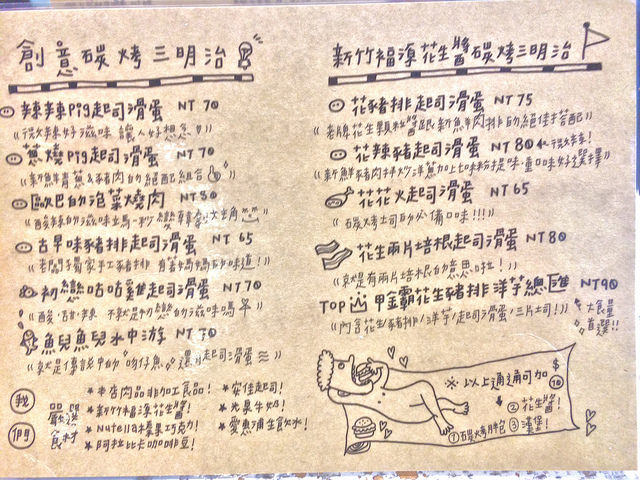 創意碳烤三明治
辣辣Pig起司滑蛋 NT 70
《微辣好滋味 讓人好想念!》
蔥燒Pig起司滑蛋 NT 70
《新鮮青蔥&豬肉的絕配組合》
歐巴的泡菜燒肉 NT 80
古早味豬排起司滑蛋 NT 65
《老闆獨家手工豬排 有著媽媽的味道!》
初戀咕咕雞起司滑蛋 NT 70
《酸、甜、辣 不就是初戀的滋味嗎》
魚兒魚兒水中游 NT 70
《就是傳說中的吻仔魚 起司滑蛋》
我們
嚴選食材
*本店肉品非加工食品!
*新竹福源花生醬!
*Nutella榛果巧克力!
*阿拉比卡咖啡豆!
*安佳起司!
*光泉牛奶!
*愛惠浦生飲水!
新竹福源花生醬碳烤三明治
花豬排起司滑蛋 NT 75
《老牌花生顆粒醬跟新鮮豬肉排的絕佳搭配》
花辣豬起司滑蛋 NT 80 微辣!
《新鮮豬肉拌炒洋蔥加上咖哩粉提味,重口味好選擇》
花花火起司滑蛋 NT 65
《碳烤土司的必備口味!!!》
花生兩片培根起司滑蛋 NT 80
《就是有兩片培根的意思啦!》
TOP 甲霸花生豬排洋芋總匯 NT90
《內含花生/豬排/洋芋/起司滑蛋/三片土司!》
大食量首選!!
※以上通通可加 $10
①碳烤胖包
②花生醬!
③漢堡!